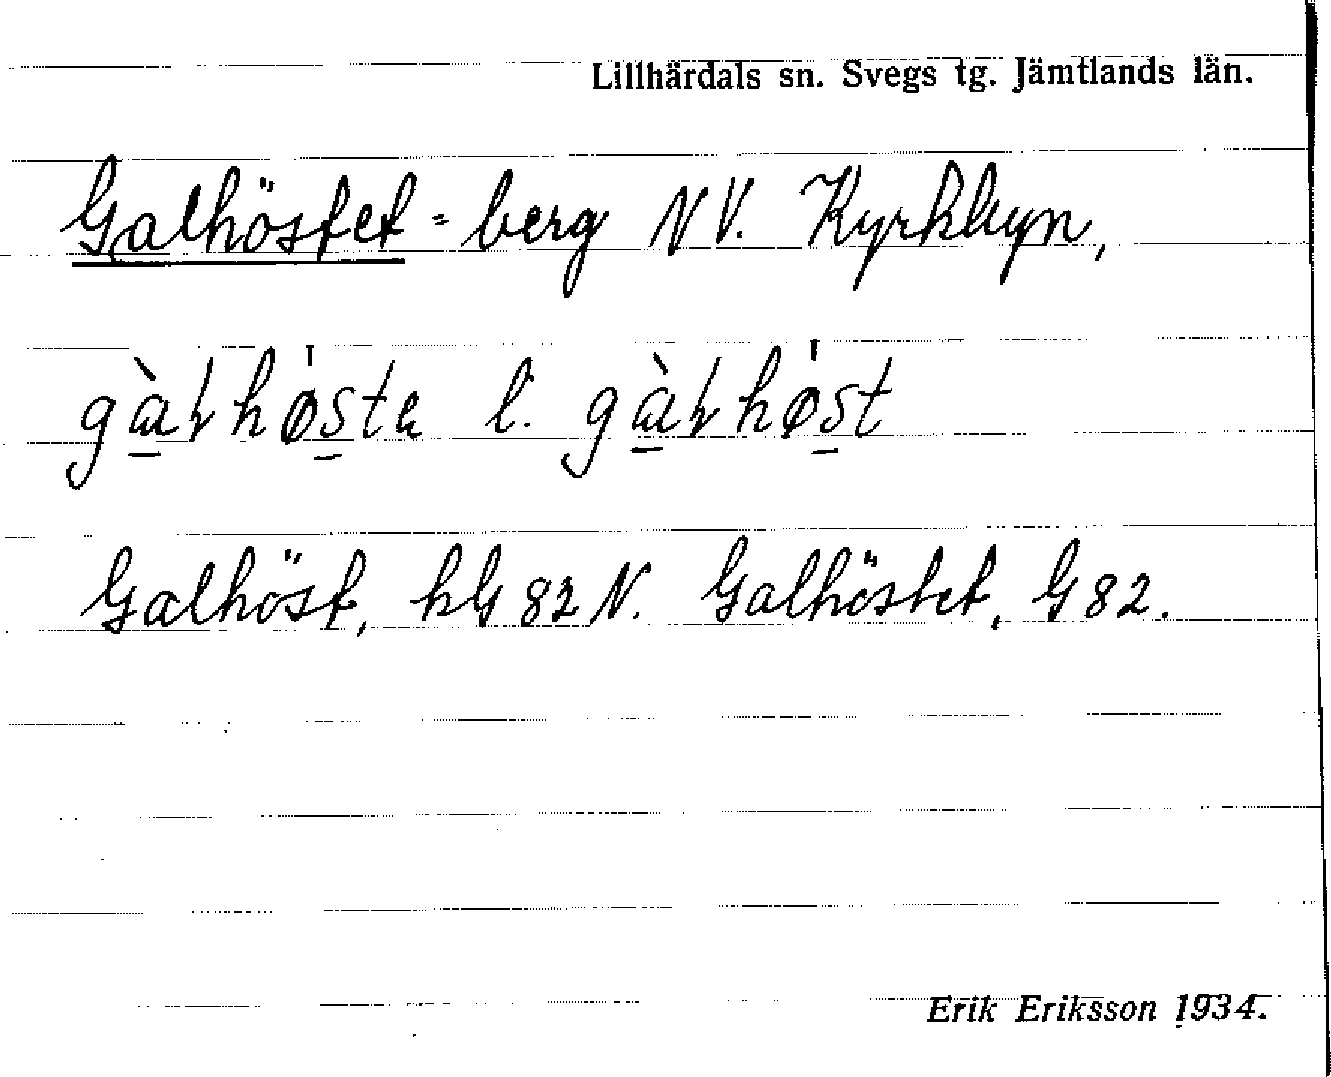 Lillhärdals sn. Svegs tg. Jämtlands län.
Galhöstet = berg NV. Kyrkbyn,
gàɫhøsta l. gàɫhøst
Galhöst, hG 82 N. Galhöstet, G 82.
Erik Eriksson 1934.